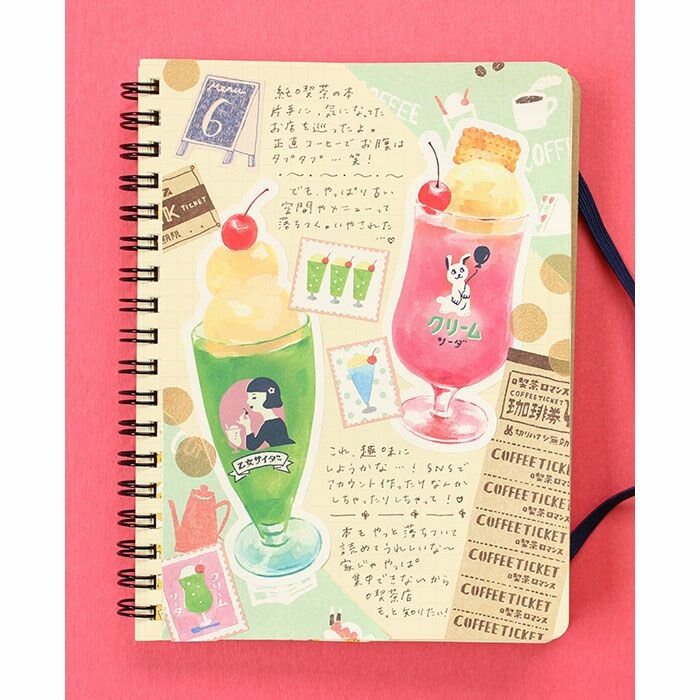 Menu
6
純喫茶の本
片手に、気になってた
お店を巡ったよ。
正直コーヒーでお腹は
タプタプ…笑！
でも、やっぱり古い
空間やメニューって
落ちつく。いやされた
…♡
COFFEE
COFF
TICKET
クリーム
ソーダ
乙女サイダー
喫茶ロマンス
COFFEETICKET
珈琲券
切りハナシ無効
COFFEETICKET
喫茶ロマンス
COFFEETICKET
喫茶ロマンス
COFFEETICKET
喫茶ロマンス
COFFEETICKET
喫茶ロマンス
COFFEETICKET
喫茶ロマンス
COFFEETICKET
これ、趣味に
しようかな…！SNSで
アカウント作ったりなんか
しちゃったりしちゃって！♡
本もやっと落ちついて
読めてうれしいな〜
家じゃやっぱ
集中できないから
喫茶店
もっと知りたい！
クリーム
ソーダ